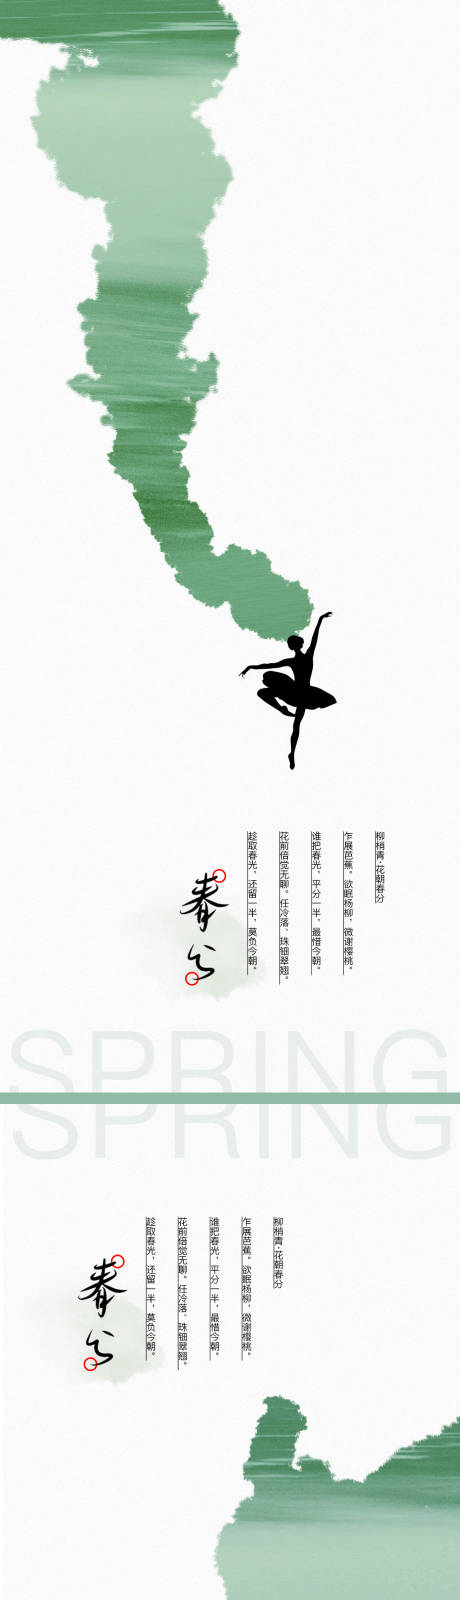 柳梢青·花朝春分
乍展芭蕉。欲眠杨柳，微谢樱桃。
谁把春光，平分一半，最惜今朝。
花前倍觉无聊。任冷落、珠钿翠翘。
趁取春光，还留一半，莫负今朝。
春分
SPRING
SPRING
柳梢青·花朝春分
乍展芭蕉。欲眠杨柳，微谢樱桃。
谁把春光，平分一半，最惜今朝。
花前倍觉无聊。任冷落、珠钿翠翘。
趁取春光，还留一半，莫负今朝。
春分